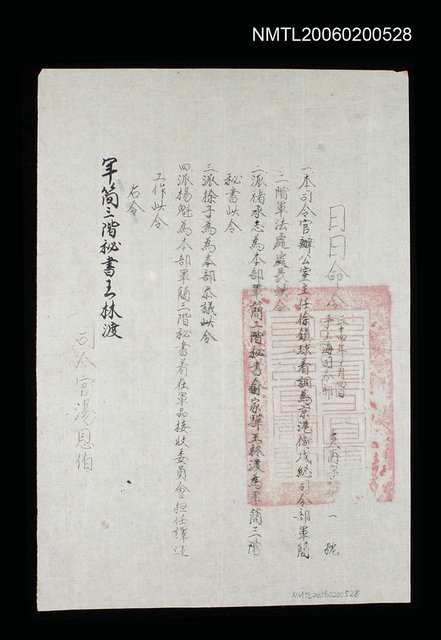 NMTL20060200528
日日命令
一本司令官辦公室主任徐鎮球着調為京滬衛戍總司令部軍簡
二階軍法處處長此令
二派褚承志為本部軍簡二階秘書俞家驊王林渡為軍簡三階
秘書此令
三派徐子為為本部參議此令
四派楊魁為本部軍簡三階秘書着在軍品接收委員會担任譯述
工作此令
右令
軍簡三階秘書王林渡
司令官湯恩伯
NMTL20060200528